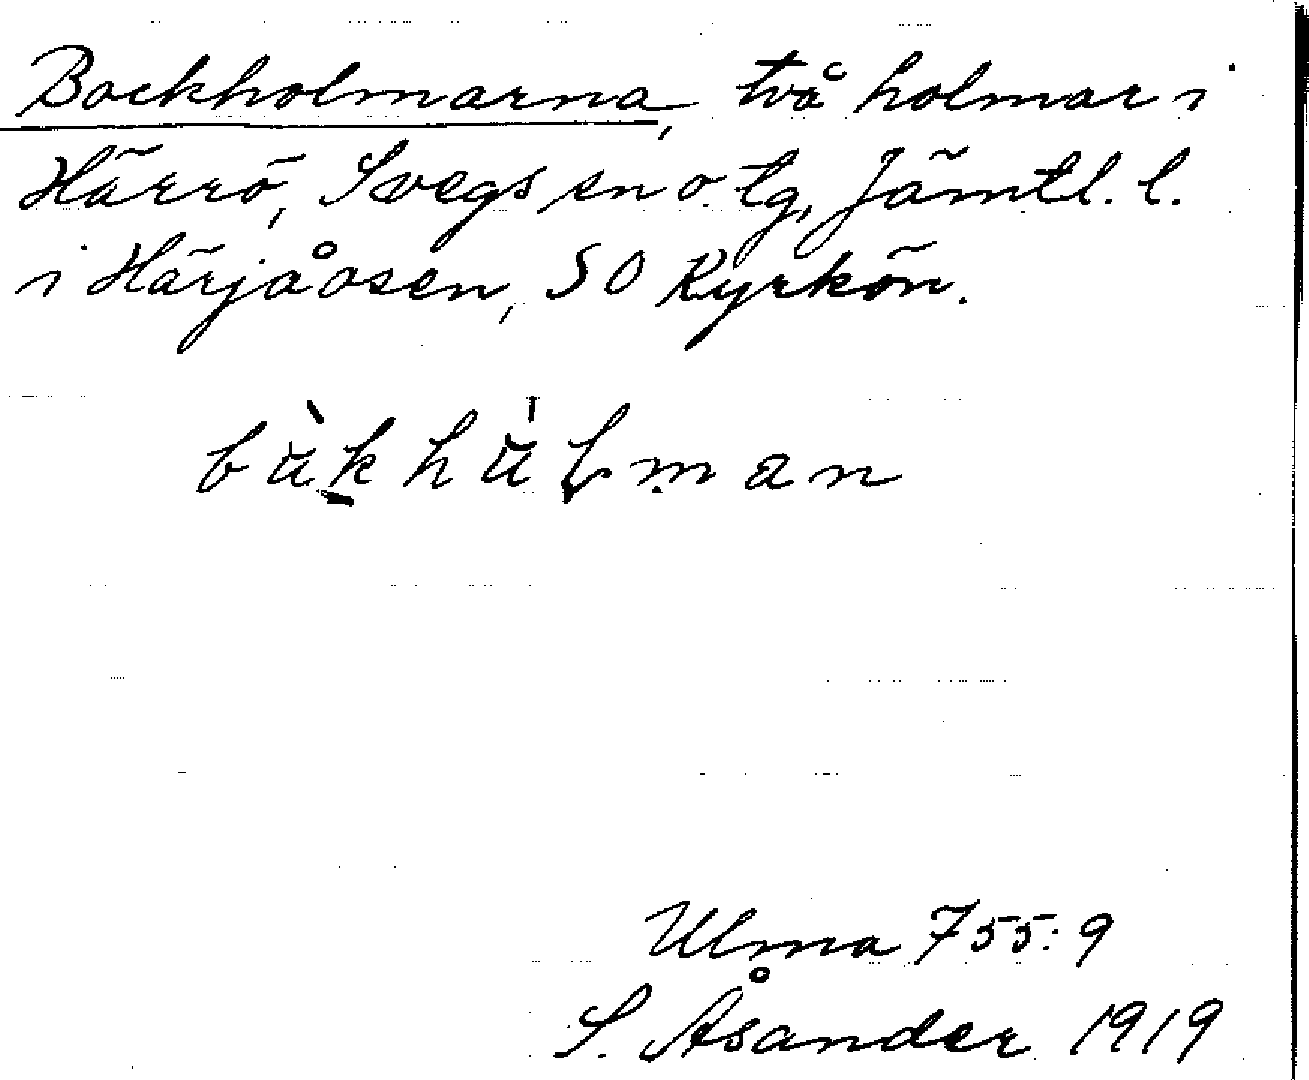 Bockholmarna, två holmar i
Härrö, Svegs sn o. tg, Jämtl. l.
i Härjåosen, SO Kyrkön.
bùkhŭlman
Ulma 755:9
S. Åsander 1919